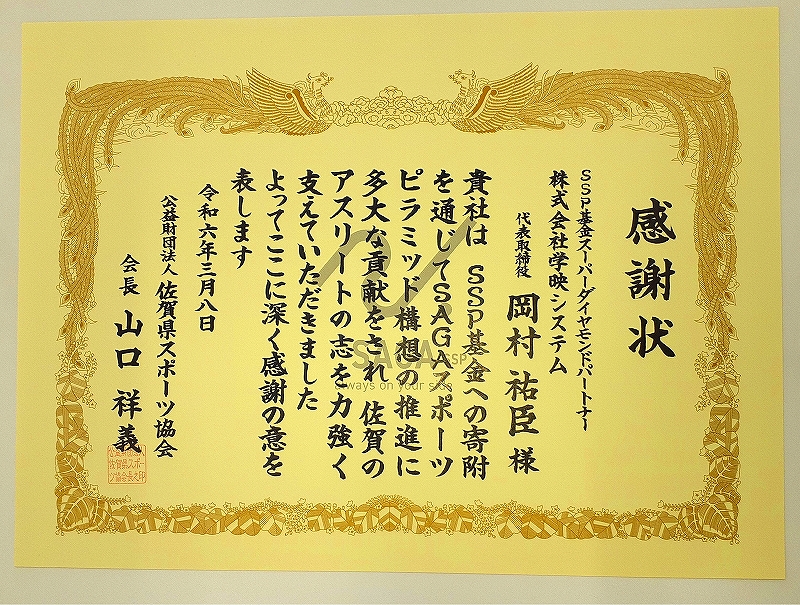 感謝状
SSP基金スーパーダイヤモンドパートナー
株式会社学映システム
代表取締役 岡村祐臣様
貴社は SSP基金への寄附
を通じてSAGAスポーツ
ピラミッド構想の推進に
多大な貢献をされ 佐賀の
アスリートの志を力強く
支えていただきました
よってここに深く感謝の意を
表します
令和六年三月八日
公益財団法人 佐賀県スポーツ協会
会長 山口祥義
SAGA SSP
always on your side